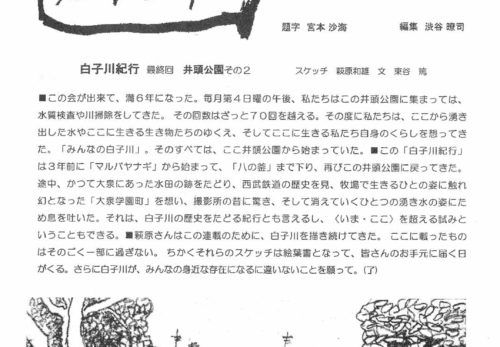 題字 宮本 沙海　　　編集 渋谷 暸司
白子川紀行 最終回 井頭公園その2　　　スケッチ 萩原和雄 文 東谷 篤
■この会が出来て、満6年になった。毎月第4日曜の午後、私たちはこの井頭公園に集まっては、
水質検査や川掃除をしてきた。その回数はざっと70回を超える。その度に私たちは、ここから湧き
出した水やここに生きる生き物たちのゆくえ、そしてここに生きる私たち自身のくらしを想ってき
た。「みんなの白子川」。そのすべては、ここ井頭公園から始まっていた。■この「白子川紀行」
は3年前に「マルバヤナギ」から始まって、「八の釜」まで下り、再びこの井頭公園に戻ってきた。
途中、かつて大泉にあった水田の跡をたどり、西武鉄道の歴史を見、牧場で生きるひとの姿に触れ
幻となった「大泉学園町」を想い、撮影所の昔に驚き、そして消えていくひとつの湧き水の姿にた
め息を吐いた。それは、白子川の歴史をたどる紀行とも言えるし、〈いま・ここ〉を超える試みと
いうこともできる。■萩原さんはこの連載のために、白子川を描き続けてきた。ここに載ったもの
はそのごく一部に過ぎない。ちかくそれらのスケッチは絵葉書となって、皆さんのお手元に届く日
がくる。さらに白子川が、みんなの身近な存在になるに違いないことを願って。(了)